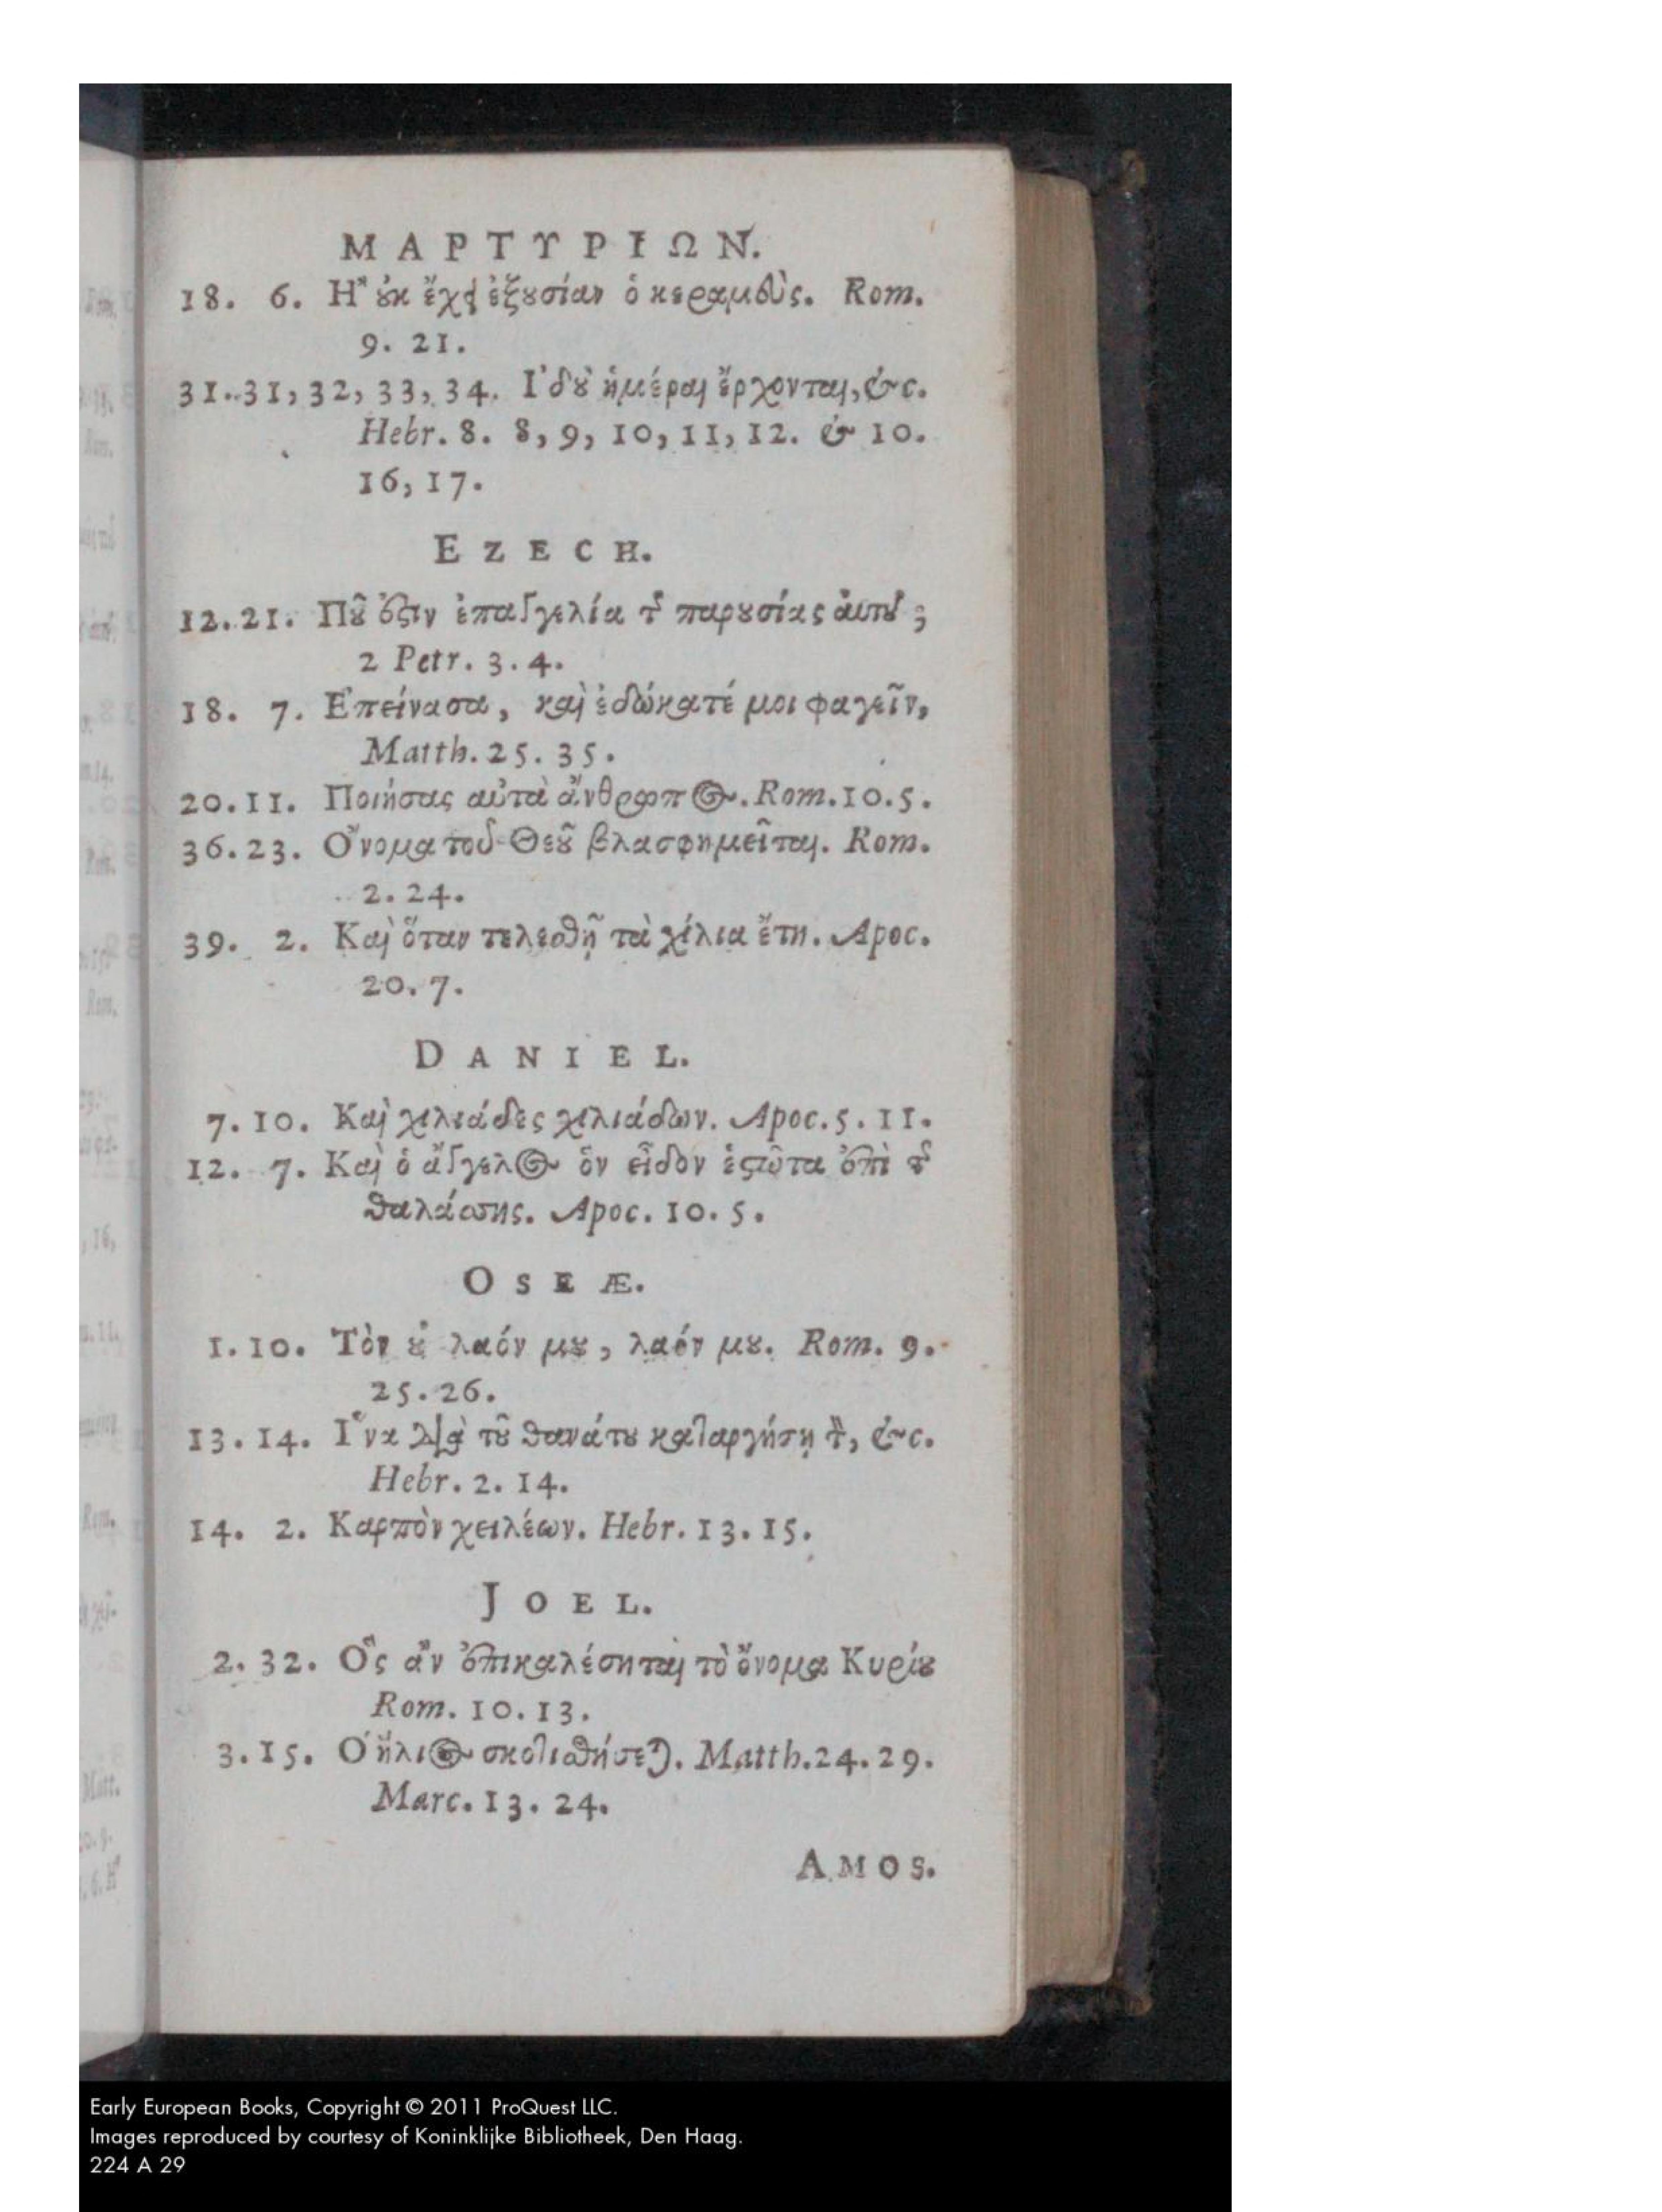 ΜΑΡΤΥΡΙΩΝ.
18. 6. Ἢ οὐκ ἔχει ἐξουσίαν ὁ κεραμεὺς. Rom.
9. 21.
31. 31, 32, 33, 34. Ἰδοὺ ἡμέραι ἔρχονται, &c.
Hebr. 8. 8, 9, 10, 11, 12. & 10.
16, 17.
EZECH.
12. 21. Ποῦ ἐστιν ἐπαγγελία τῆς παρουσίας αὐτοῦ;
2 Petr. 3. 4.
18. 7. Ἐπείνασα, καὶ ἐδώκατέ μοι φαγεῖν,
Matth. 25. 35.
20. 11. Ποιήσας αὐτὰ ἄνθρωπος. Rom. 10. 5.
36. 23. Ὄνομα τοῦ Θεοῦ βλασφημεῖται. Rom.
2. 24.
39. 2. Καὶ ὅταν τελεσθῇ τὰ χίλια ἔτη. Apoc.
20. 7.
DANIEL.
7. 10. Καὶ χιλιάδες χιλιάδων. Apoc. 5. 11.
12. 7. Καὶ ὁ ἄγγελος ὃν εἶδον ἑστῶτα ἐπὶ τῆς
θαλάσσης. Apoc. 10. 5.
OSEÆ.
1. 10. Τὸν οὐ λαόν μου, λαόν μου. Rom. 9.
25. 26.
13. 14. Ἵνα διὰ τοῦ θανάτου καταργήσῃ τὸν, &c.
Hebr. 2. 14.
14. 2. Καρπὸν χειλέων. Hebr. 13. 15.
JOEL.
2. 32. Ὃς ἂν ἐπικαλέσηται τὸ ὄνομα Κυρίου
Rom. 10. 13.
3. 15. Ὁ ἥλιος σκοτισθήσεται. Matth. 24. 29.
Marc. 13. 24.
AMOS.
Early European Books, Copyright © 2011 ProQuest LLC.
Images reproduced by courtesy of Koninklijke Bibliotheek, Den Haag.
224 A 29